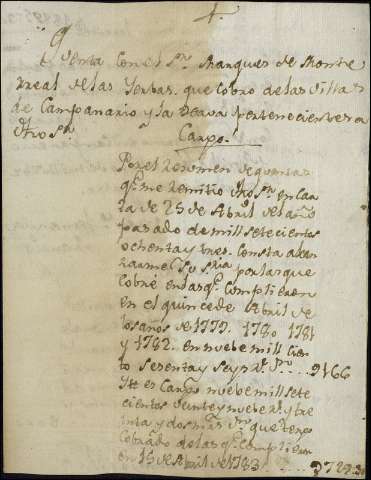 1.
Quenta con el Sr. Marques de Monte
rreal de las Yerbas que cobro de las villas
de Campanario y la perteneciente a
dho Sr.
Cargo
Por el resumen de quentas
qe. me remitio dho Sr. en Car
ta de 25 de Abril del año
pasado de mill setecientos
ochenta y tres. Consta alcan
zarme Su Sria por las que
cobré en las qe. Cumplieron
en el quince de Abril de
los años de 1779. 1780 1781
y 1782. en nuebe mill cien
to sesenta y seys rs. Vn. .... 9166
Ytt es Cargo nuebe mill sete
cientos veinte y nuebe rs. y tre
inta y dos mrs. Vn. que tengo
Cobrado de las qe. Cumplieron
en 15 de Abril de 1783 .... 9729.32